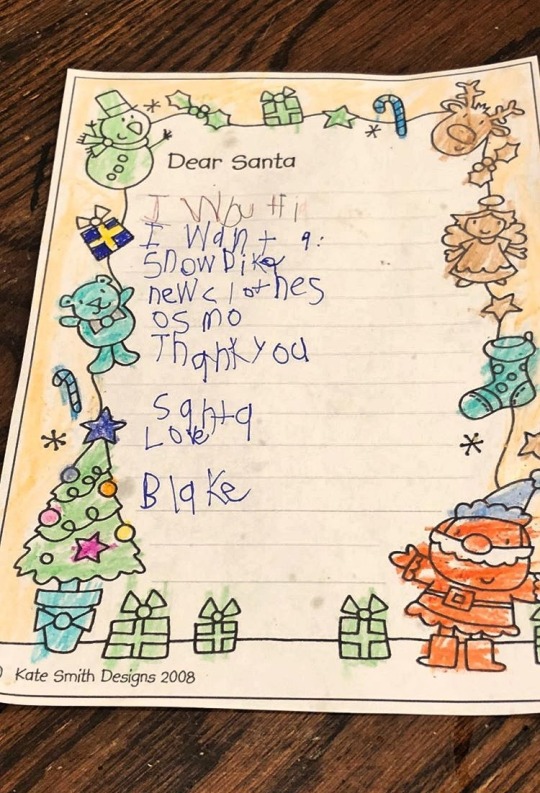 Dear Santa
I
I Want a:
Snow Bike
new clothes
osmo
Thank you
Santa
Love
Blake
Kate Smith Designs 2008